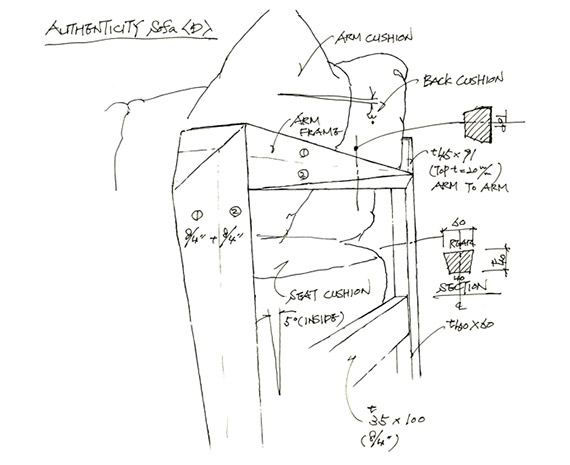 AUTHENTICITY Sofa <D>
ARM CUSHION
BACK CUSHION
ARM
FRAME
①
②
t45 × 91
(Top t=20m/m)
ARM TO ARM
① ②
8/4" + 8/4"
60
REAR
40
SECTION
SEAT CUSHION
5° (INSIDE)
t60 × 60
t
35 × 100
(8/4")